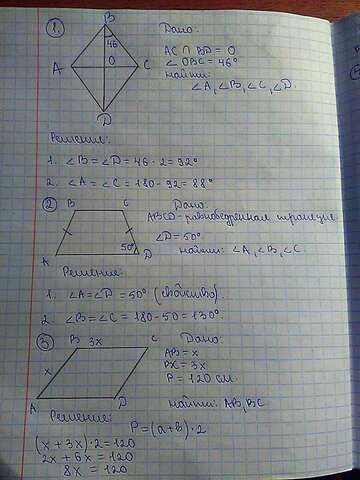 1.
Дано:
B
46
A O C
D
AC ∩ BD = O
∠ OBC = 46°
Найти:
∠A, ∠B, ∠C, ∠D.
Решение:
1. ∠B = ∠D = 46 · 2 = 92°
2. ∠A = ∠C = 180 - 92 = 88°
2
B C
A 50° D
Дано:
ABCD - равнобедренная трапеция
∠D = 50°
Найти: ∠A, ∠B, ∠C.
Решение:
1. ∠A = ∠D = 50° (свойство).
2. ∠B = ∠C = 180 - 50 = 130°.
3
B 3x C
x
A D
Дано:
AB = x
BC = 3x
P = 120 см.
Найти: AB, BC
Решение:
P = (a+b) · 2
(x + 3x) · 2 = 120
2x + 6x = 120
8x = 120